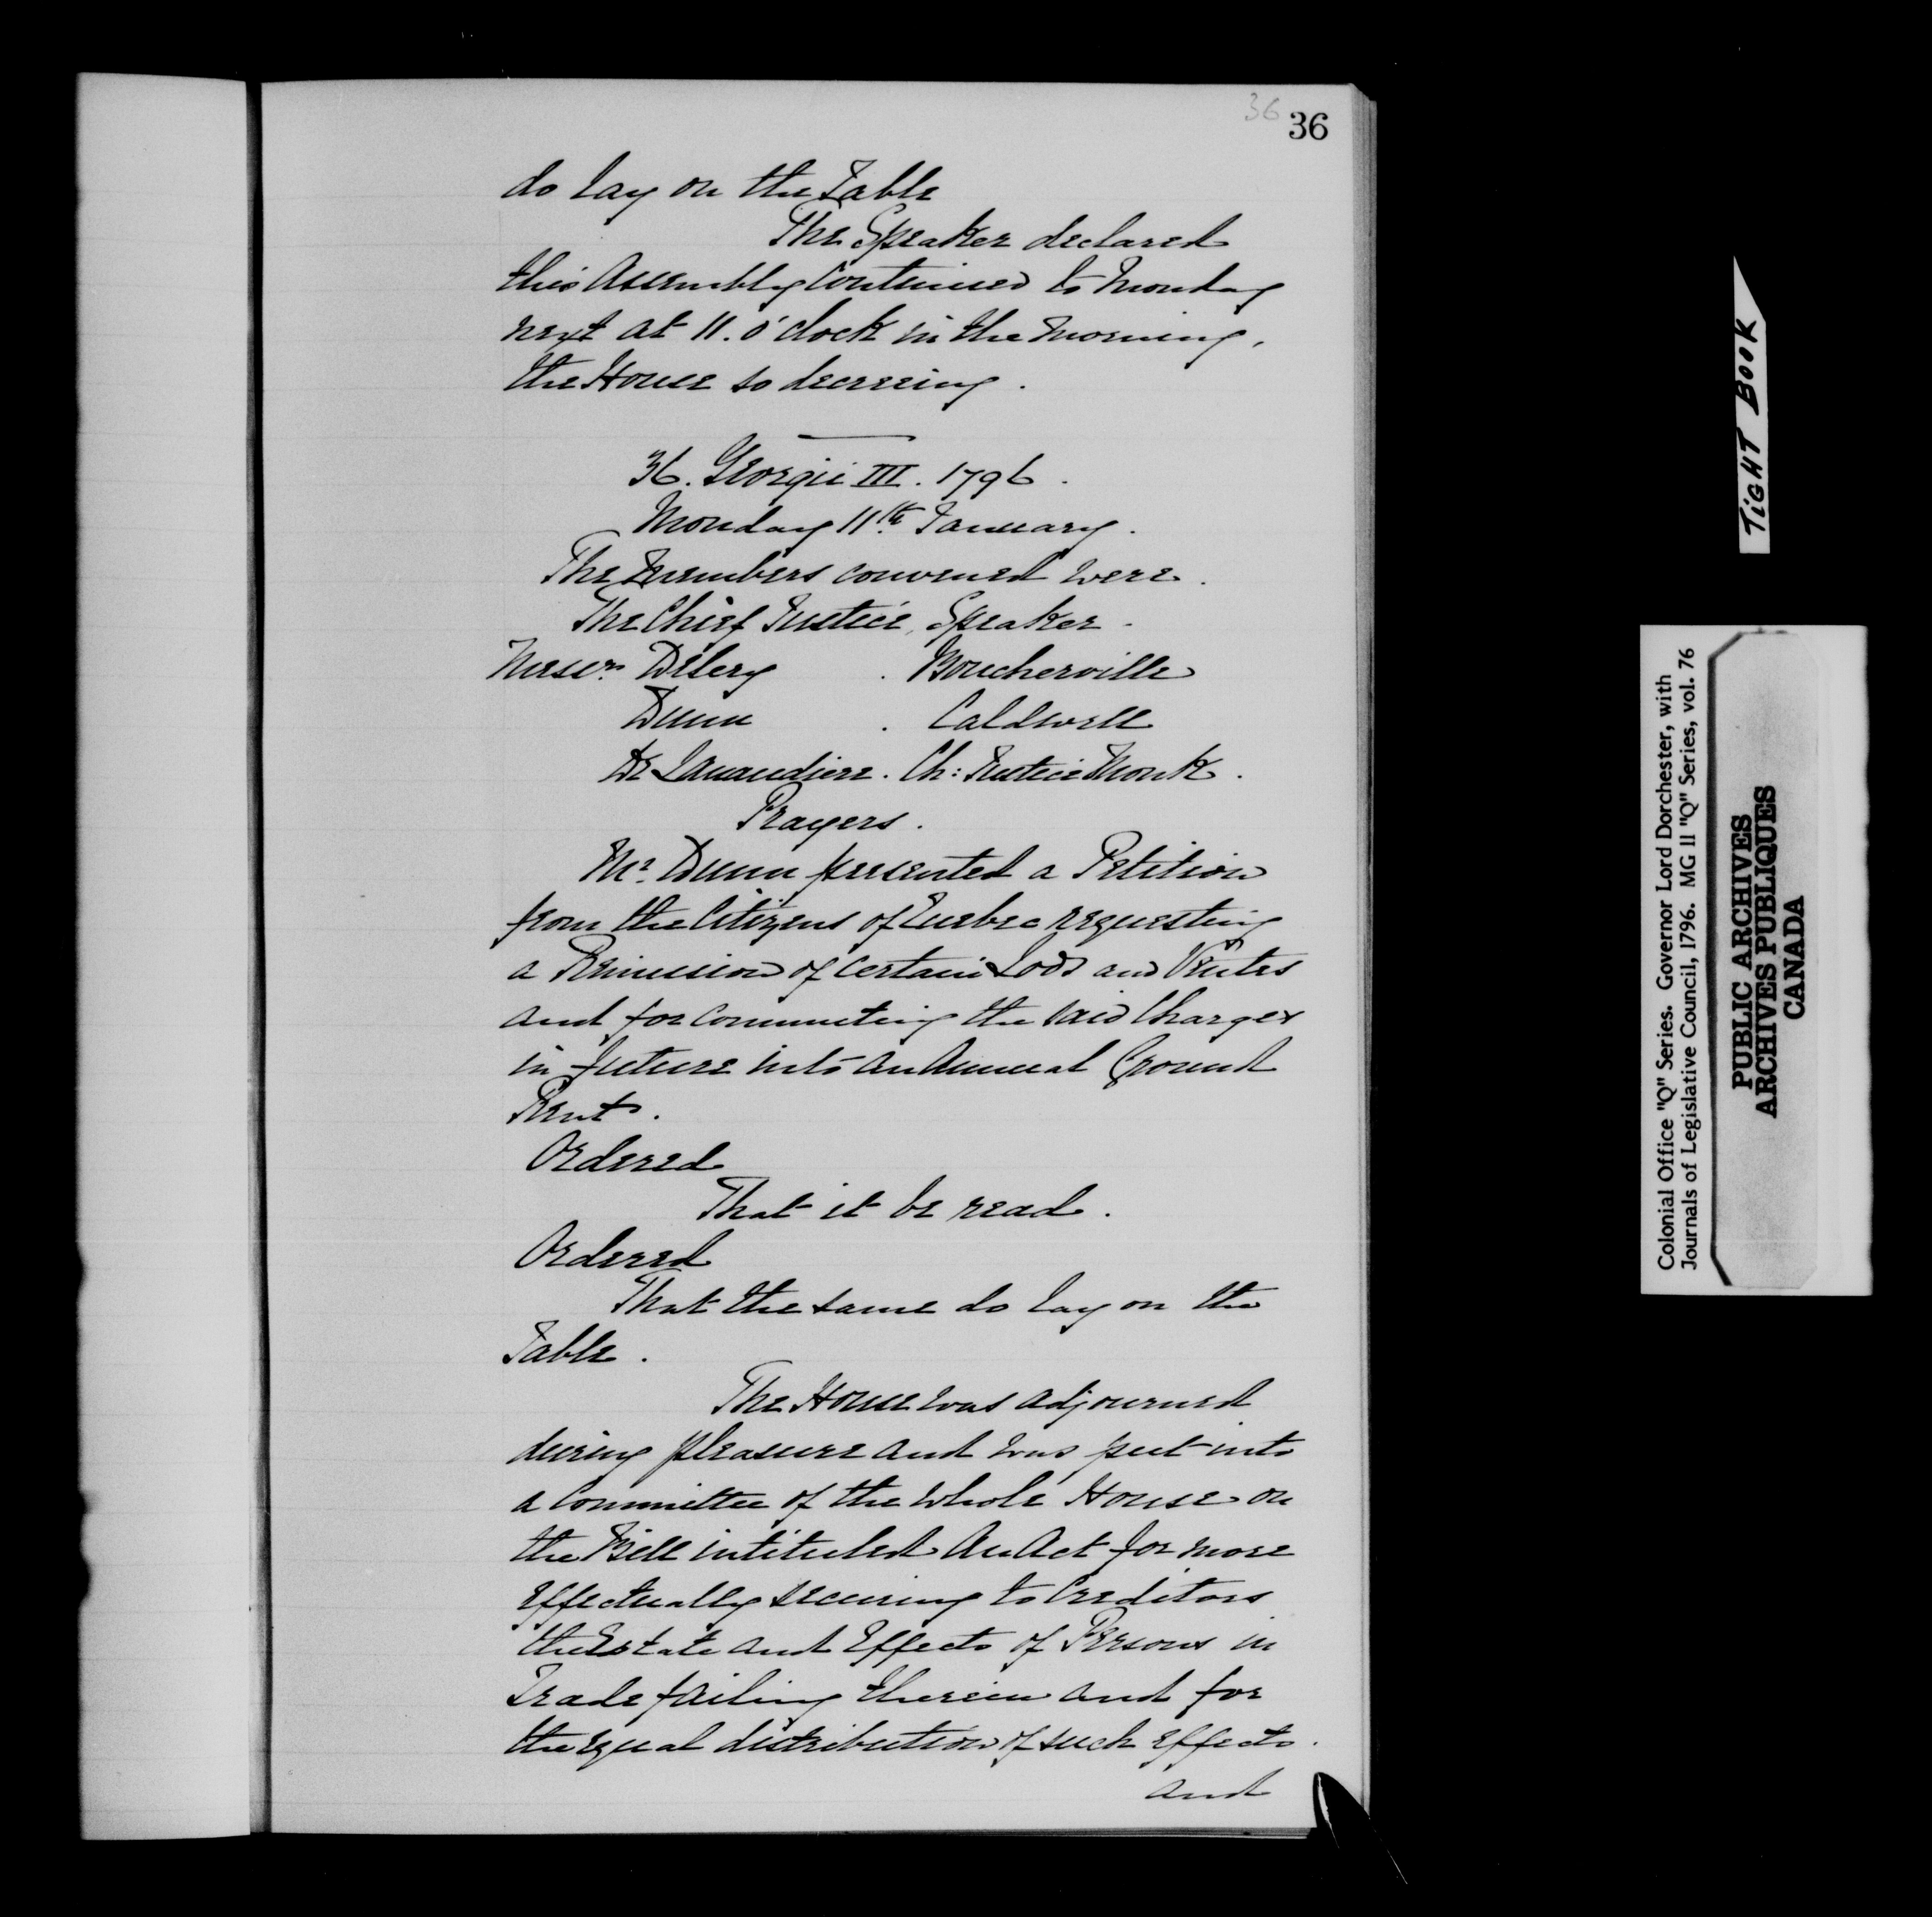 36 36
do lay on the Table
The Speaker declared
this Assembly Continued to Monday
next at 11. o'clock in the Morning,
the House so decreeing.
36. Georgii III. 1796.
Monday 11th January.
The Members convened were.
The Chief Justice, Speaker.
Messrs Delery . Boucherville
Dunn . Caldwell
De Lanaudiere. Ch: Justice Monk.
Prayers.
Mr. Dunn presented a Petition
from the Citizens of Quebec requesting
a Remission of certain Lods and Ventes
and for Commuting the said Charges
in future into an Annual Ground
Rent.
Ordered
That it be read.
Ordered
That the same do lay on the
Table.
The House was adjourned
during pleasure and was put into
a Committee of the whole House on
the Bill intituled An Act for more
effectually securing to Creditors
the Estate and Effects of Persons in
Trade failing therein and for
the equal distribution of such effects.
and
TIGHT BOOK
Colonial Office "Q" Series. Governor Lord Dorchester, with
Journals of Legislative Council, 1796. MG 11 "Q" Series, vol. 76
PUBLIC ARCHIVES
ARCHIVES PUBLIQUES
CANADA